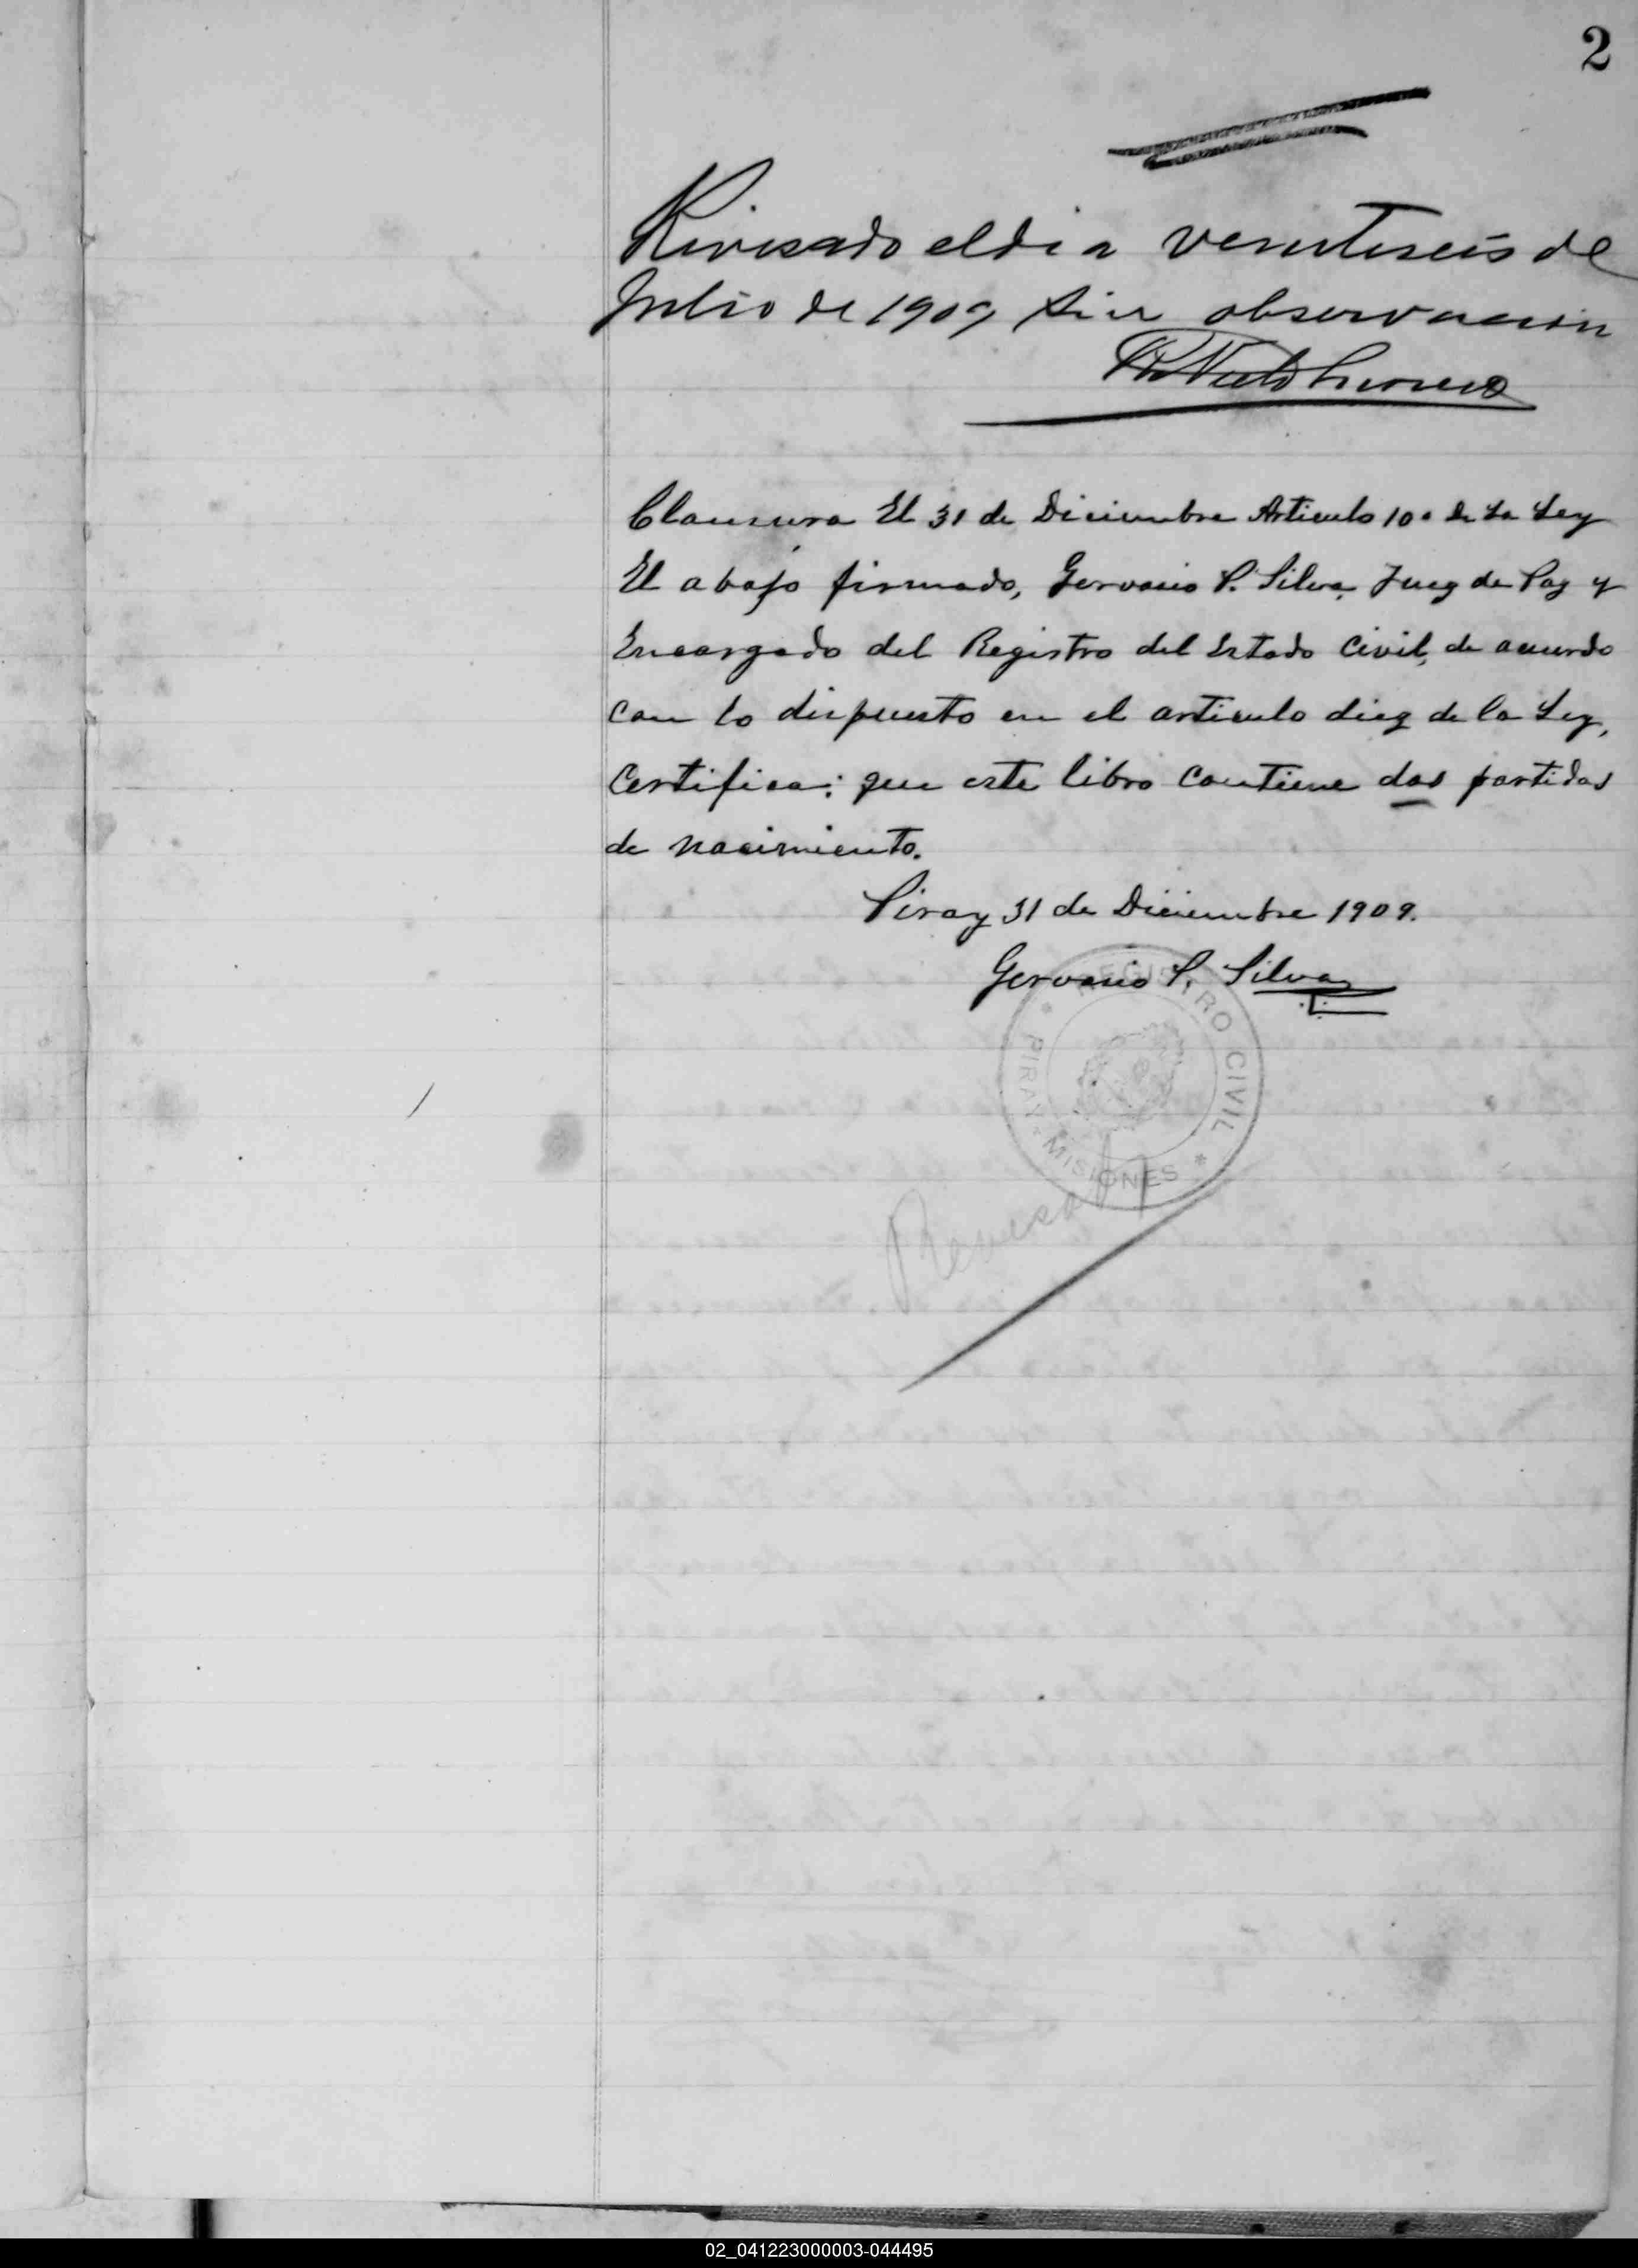 2
Revisado el dia veintiseis de
Julio de 1909 sin observacion
Clausura El 31 de Diciembre Articulo 10º de la Ley
El abajo firmado, Gervasio P. Silva, Juez de Paz y
Encargado del Registro del Estado Civil, de acuerdo
con lo dispuesto en el articulo diez de la Ley,
Certifica: que este libro contiene dos partidas
de nacimiento.
Piray 31 de Diciembre 1909.
Gervasio P. Silva
* REGISTRO CIVIL *
PIRAY - MISIONES
Revisado
02_041223000003-044495